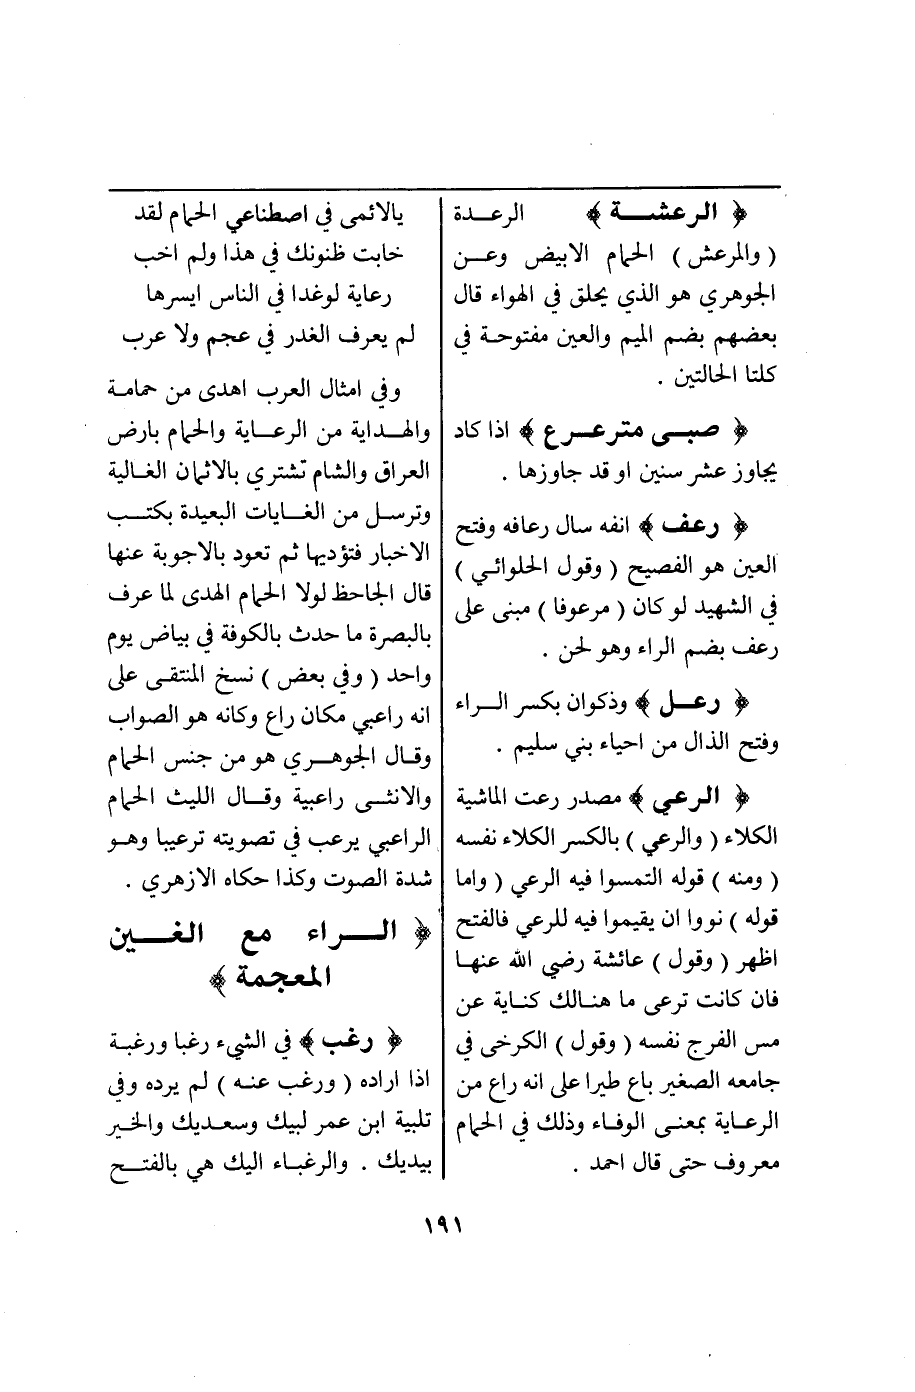 ﴿ الرعشـــة ﴾ الرعـدة
( والمرعش ) الحمام الابيض وعــن
الجوهري هو الذي يحلق في الهواء قال
بعضهم بضم الميم والعين مفتوحة في
كلتا الحالتين .
﴿ صبــى مترعــرع ﴾ اذا كاد
يجاوز عشر سنين او قد جاوزها .
﴿ رعف ﴾ انفه سال رعافه وفتح
العين هو الفصيح ( وقول الحلوائي )
في الشهيد لو كان ( مرعوفا ) مبنى على
رعف بضم الراء وهو لحن .
﴿ رعــل ﴾ وذكوان بكسر الـراء
وفتح الذال من احياء بني سليم .
﴿ الرعي ﴾ مصدر رعت الماشية
الكلاء ( والرعي ) بالكسر الكلاء نفسه
( ومنه ) قوله التمسوا فيه الرعي ( واما
قوله ) نووا ان يقيموا فيه للرعي فالفتح
اظهر ( وقول ) عائشة رضي الله عنهـا
فان كانت ترعى ما هنـالك كنـاية عن
مس الفرج نفسه ( وقول ) الكرخى في
جامعه الصغير باع طيرا على انه راع من
الرعـاية بمعنـى الوفـاء وذلك في الحمام
معروف حتى قال احمد .
يالائمى في اصطناعي الحمام لقد
خابت ظنونك في هذا ولم اخب
رعاية لوغدا في الناس ايسرها
لم يعرف الغدر في عجم ولا عرب
وفي امثال العرب اهدى من حمامـة
والهـداية من الرعـاية والحمام بارض
العراق والشام تشترى بالاثمان الغـالية
وترسـل من الغـايات البعيدة بكتـب
الاخبار فتؤديها ثم تعود بالاجوبة عنها
قال الجاحظ لولا الحمام الهدى لما عرف
بالبصرة ما حدث بالكوفة في بياض يوم
واحد ( وفي بعض ) نسخ المنتقـى على
انه راعبي مكان راع وكانه هو الصواب
وقـال الجوهـري هو من جنس الحمام
والانثـى راعبية وقـال الليث الحمام
الراعبي يرعب في تصويته ترعيبا وهـو
شدة الصوت وكذا حكاه الازهري .
﴿ الـــراء مع الغـــين
المعجمة ﴾
﴿ رغب ﴾ في الشيء رغبا ورغبـة
اذا اراده ( ورغب عنـه ) لم يرده وفي
تلبية ابن عمر لبيك وسعـديك والخـير
بيديك . والرغبـاء اليك هي بالفتـح
١٩١